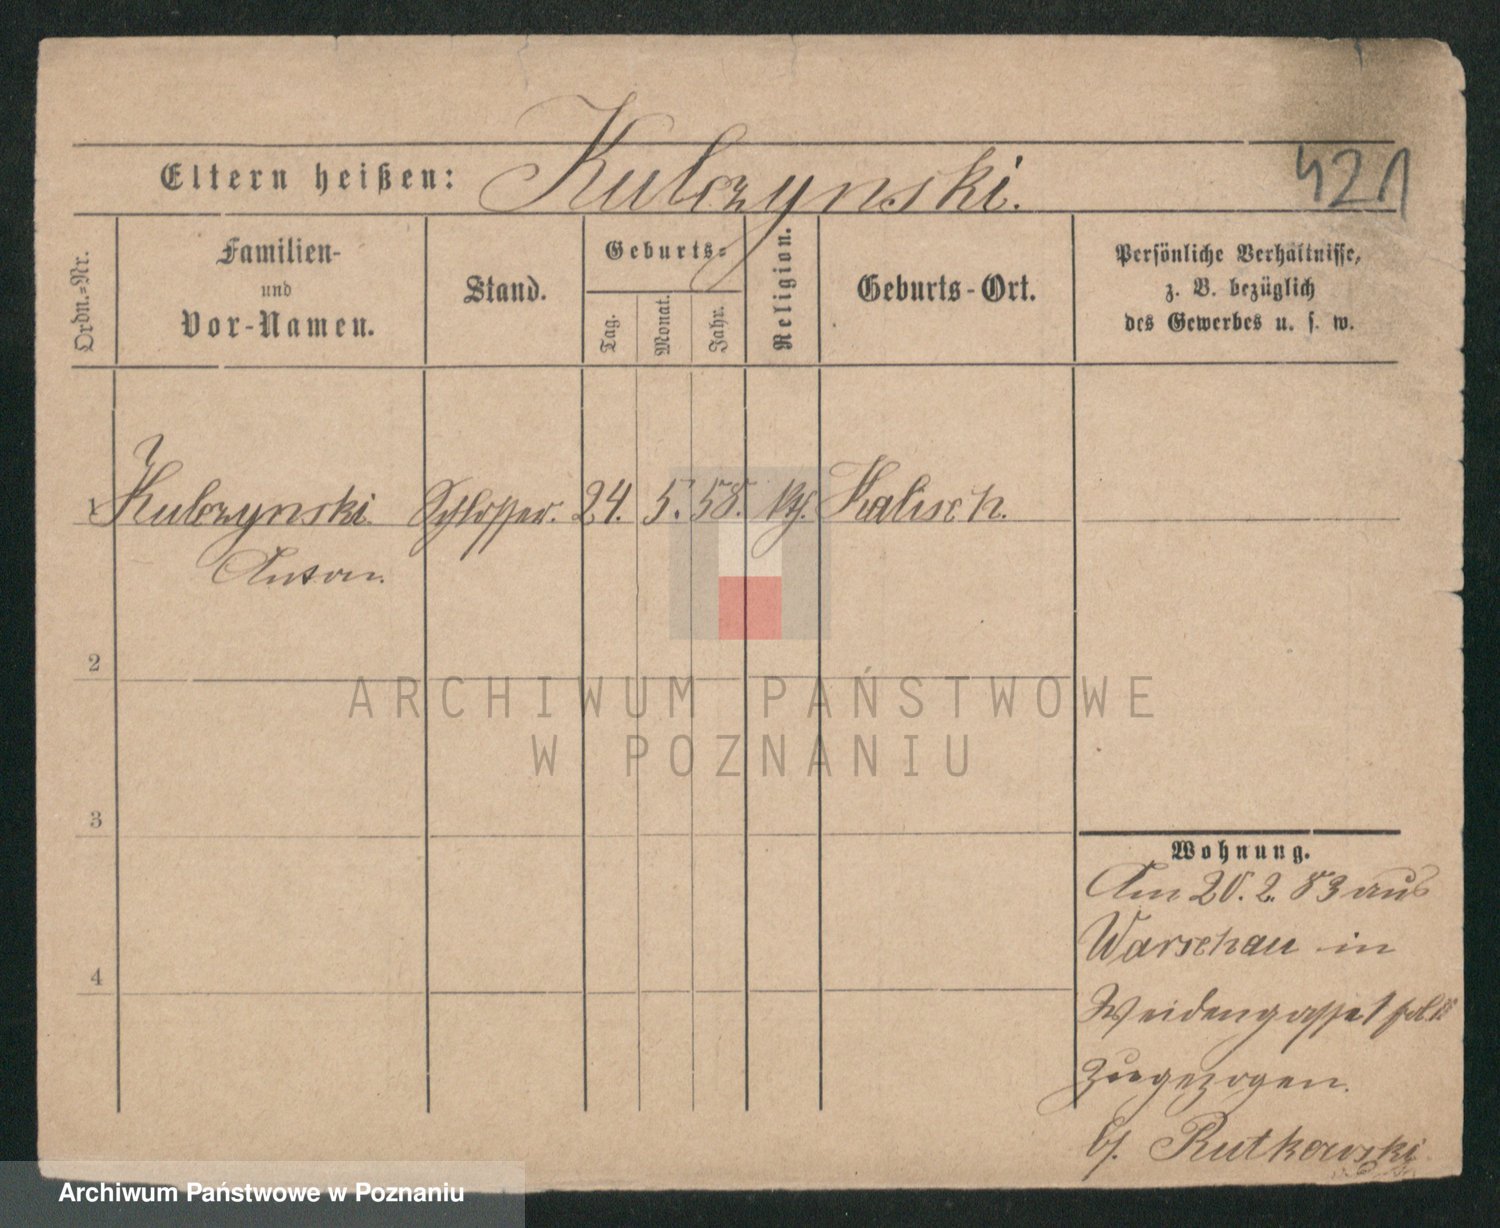 421
Eltern heißen: Kulczynski.
Ordn.-Nr.
Familien-
und
Vor-Namen.
Stand.
Geburts-
Tag.
Monat.
Jahr.
Religion.
Geburts-Ort.
Persönliche Verhältnisse,
z. B. bezüglich
des Gewerbes u. s. w.
1 Kulczynski Schlosser. 24. 5. 58. kth. Kalisch.
Anton.
2
3
4
Wohnung.
Am 20. 2. 83 aus
Warschau in
Weidengasse 1
zugezogen.
bei Rutkowski
ARCHIWUM PAŃSTWOWE
W POZNANIU
Archiwum Państwowe w Poznaniu